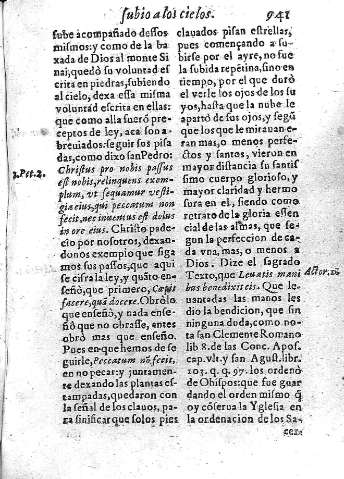 subio a los cielos. 941
sube acompañado dessos
mismos: y como de la ba-
xada de Dios al monte Si
nai, quedò su voluntad es
crita en piedras, subiendo
al cielo, dexa essa misma
voluntad escrita en ellas:
que como alla fuerõ pre-
ceptos de ley, acà son a-
breuiados: seguir sus pisa
das, como dixo san Pedro:
1. Pet. 2.
Christus pro nobis passus
est nobis, relinquens exem-
plum, vt sequamur vesti-
gia eius, qui peccatum non
fecit, nec inuentus est dolus
in ore eius. Christo pade-
cio por nosotros, dexan-
donos exemplo que siga
mos sus passos, que aqui
se cifra la ley, y quãto en-
señò, que primero, Cœpit
facere, quã docere. Obrò lo
que enseñò, y nada ense-
ñò que no obrasse, antes
obrò mas que enseñò.
Pues en que hemos de se
guirle, Peccatum nõ fecit,
en no pecar: y juntamen-
te dexando las plantas es-
tampadas, quedaron con
la señal de los clauos, pa-
ra sinificar que solos pies
clauados pisan estrellas,
pues començando a su-
birse por el ayre, no fue
la subida repẽtina, sino en
tiempo, por el que durò
el verle los ojos de los su
yos, hasta que la nube le
apartò de sus ojos, y segũ
que los que le mirauan e-
ran mas, o menos perfe-
ctos y santos, vieron en
mayor distancia su santis
simo cuerpo glorioso, y
mayor claridad y hermo
sura en el, siendo como
retrato de la gloria essen
cial de las almas, que se-
gun la perfeccion de ca-
da vna, mas, o menos a
Dios. Dize el sagrado
Texto, que Leuatis mani
bus benedixit eis. Que le-
uantadas las manos les
dio la bendicion, que sin
ninguna duda, como no-
ta san Clemente Romano
lib. 8. de las Conc. Apos.
cap. vlt. y san Agust. libr.
103. q. q. 97. los ordenò
de Obispos: que fue guar
dando el orden mismo q̃
oy cõserua la Yglesia en
la ordenacion de los Sa-
cer-